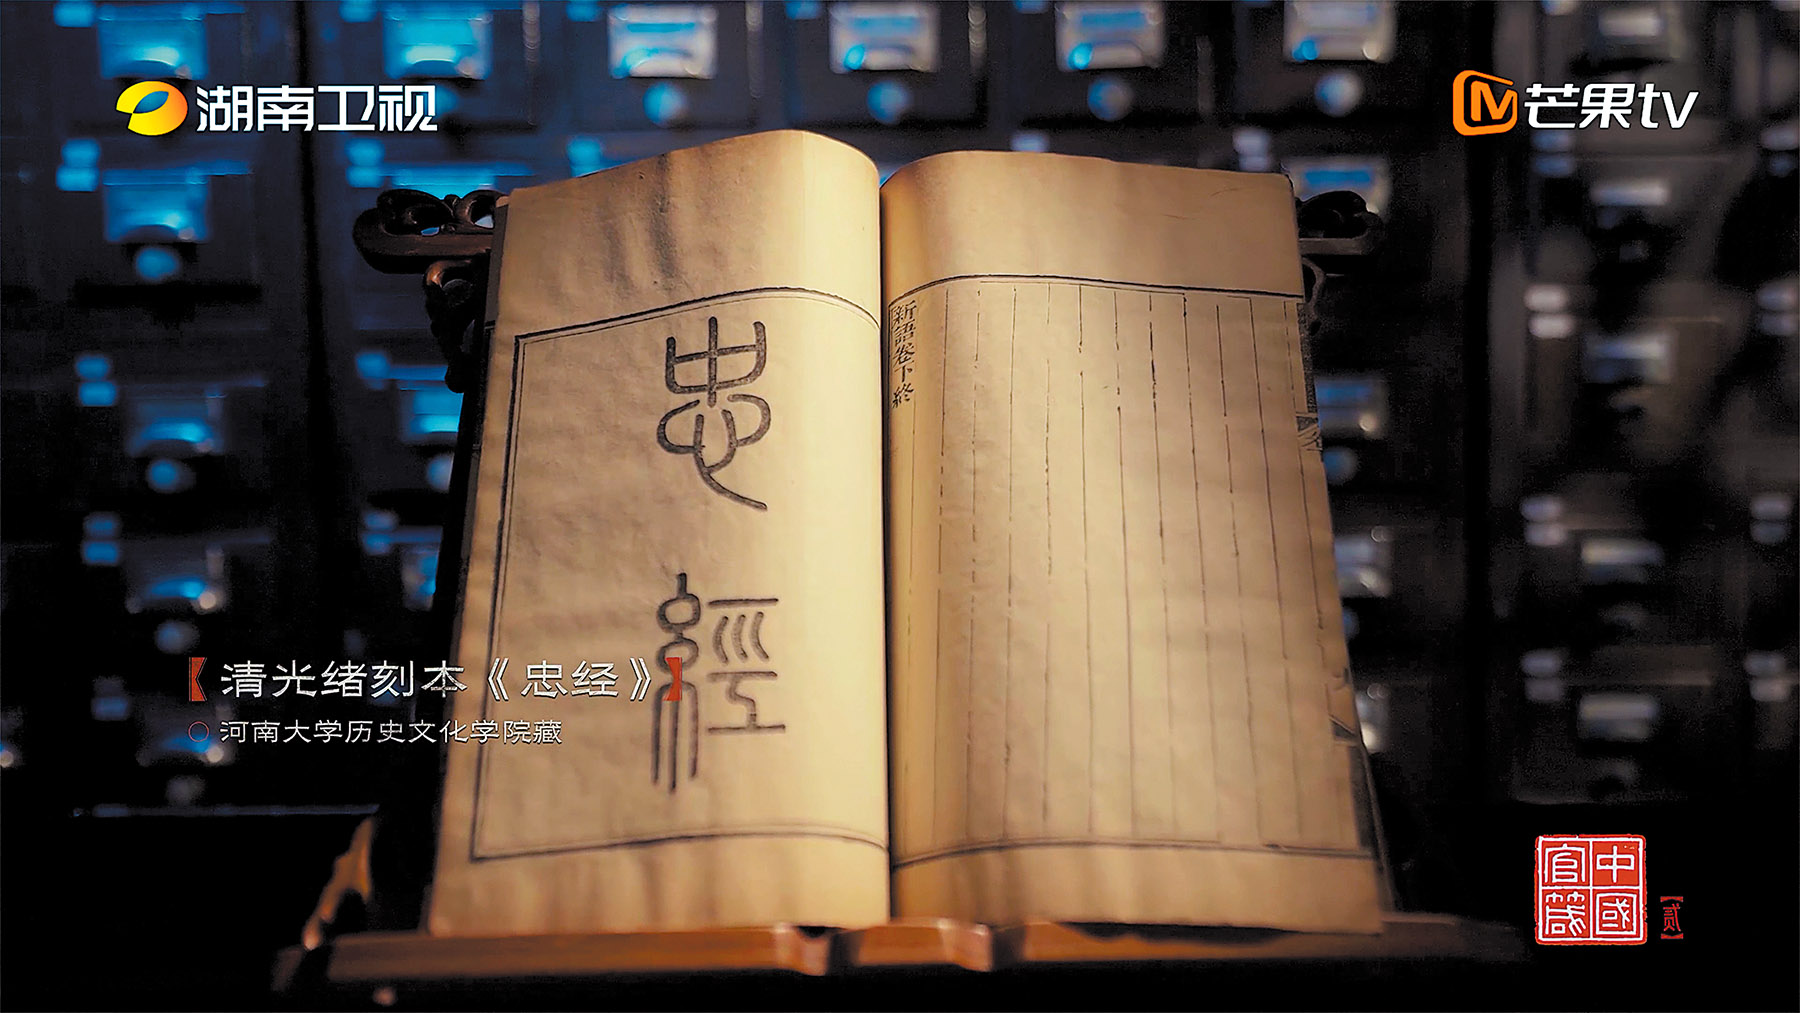 湖南卫视
芒果tv
新語卷下終
忠經
【清光绪刻本《忠经》】
河南大学历史文化学院藏
中國官箴
【贰】